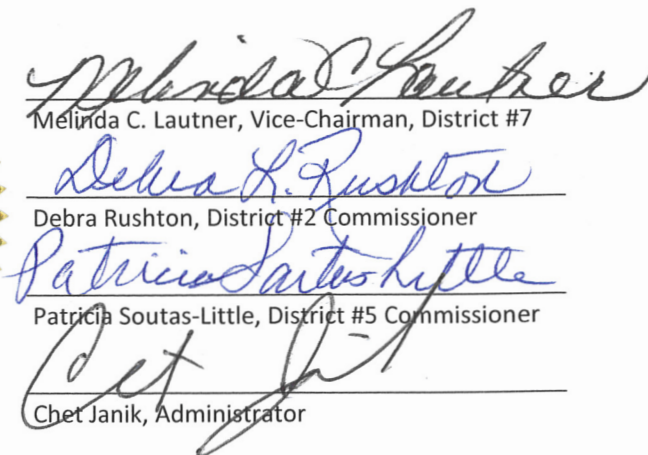 Melinda C Lautner
Melinda C. Lautner, Vice-Chairman, District #7
Debra L. Rushton
Debra Rushton, District #2 Commissioner
Patricia Soutas-Little
Patricia Soutas-Little, District #5 Commissioner
Chet Janik
Chet Janik, Administrator